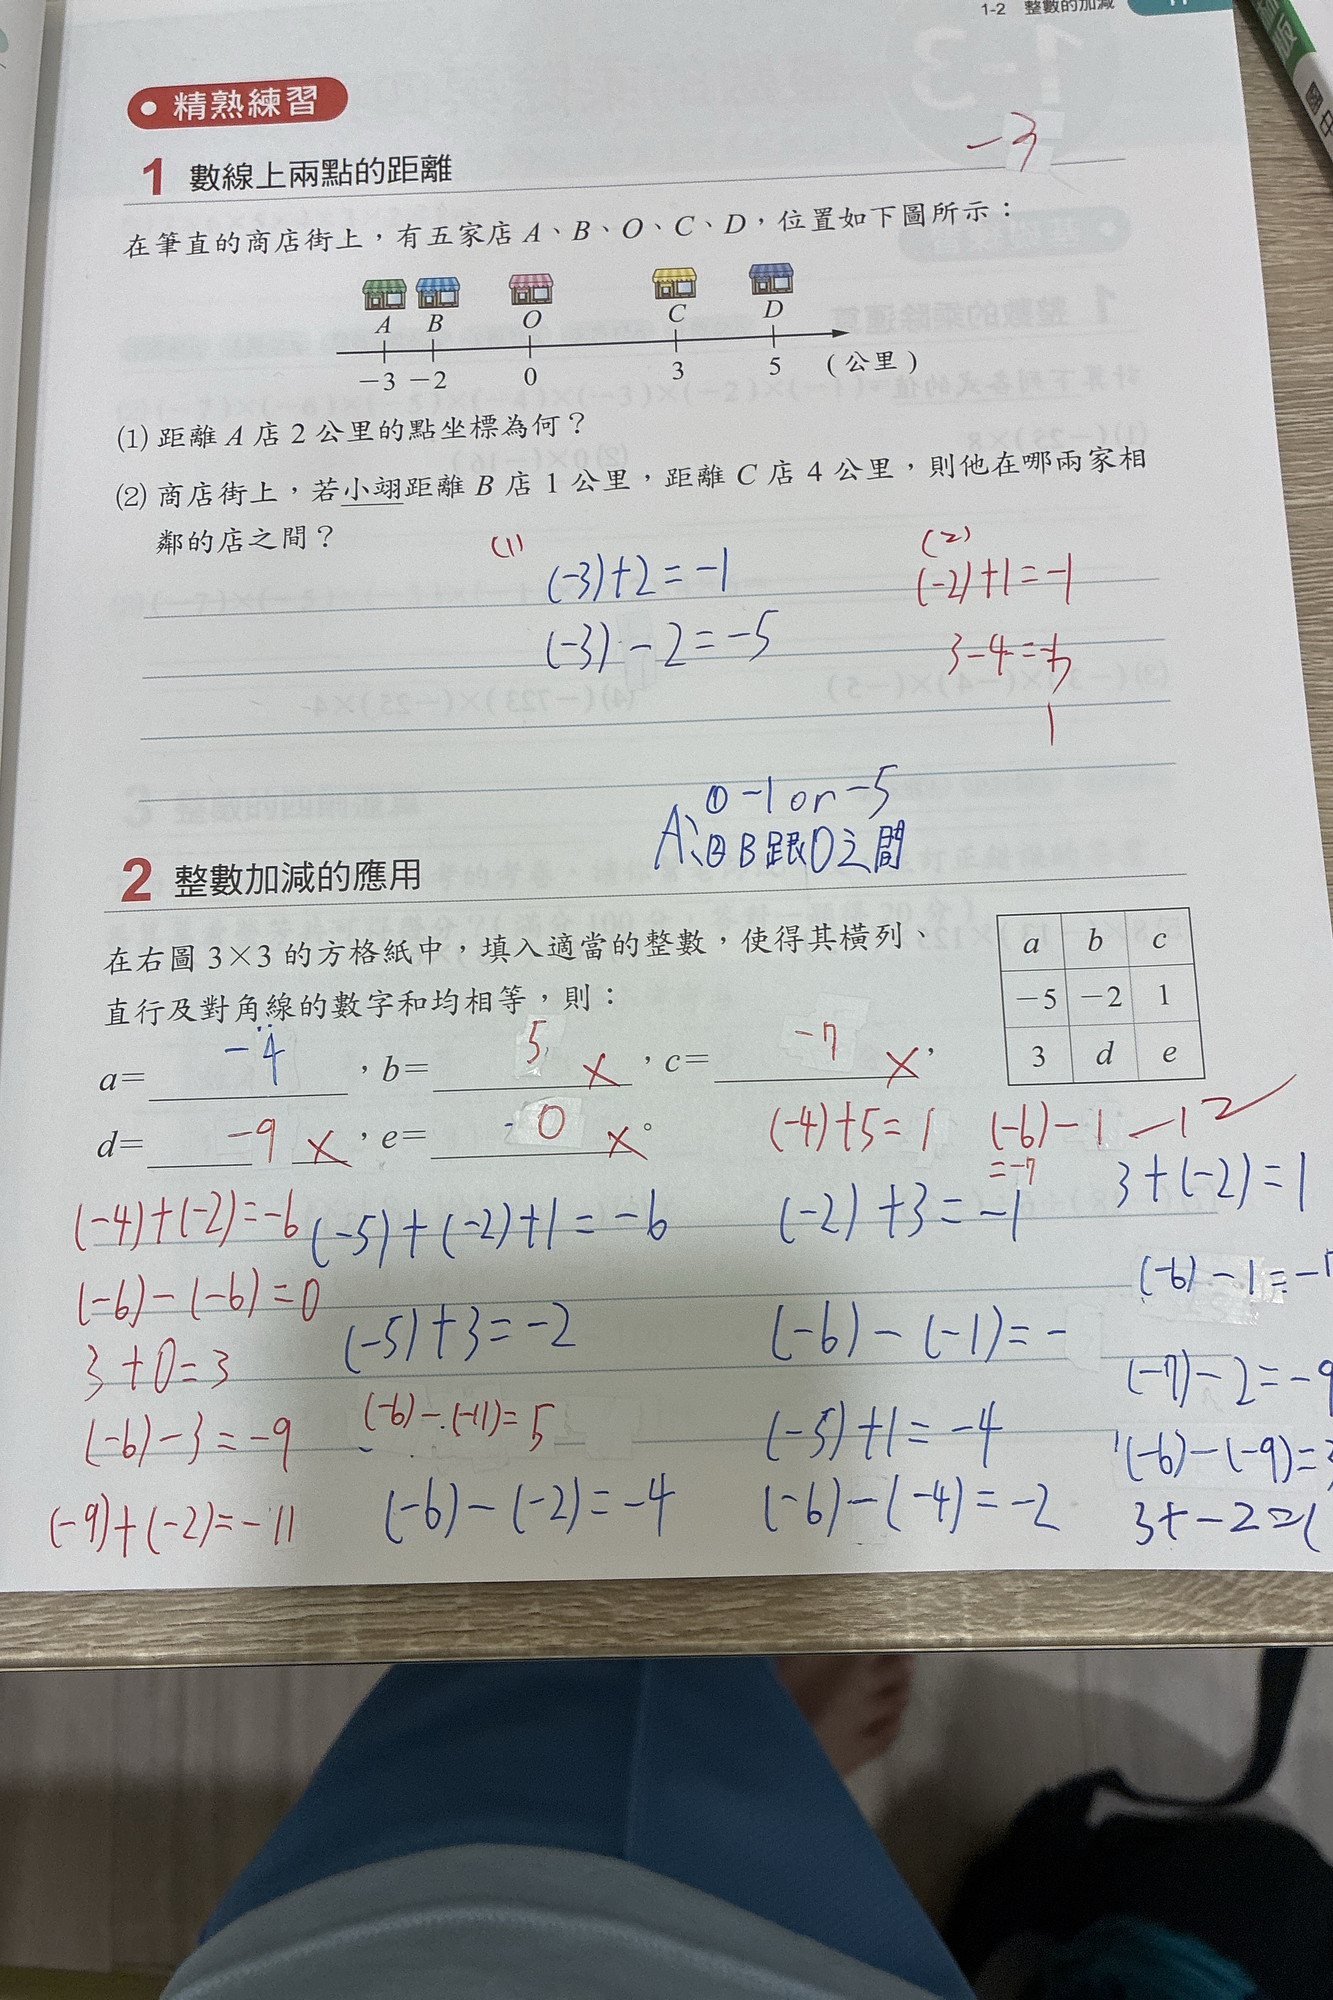 1-2 整數的加減
精熟練習
-3
1 數線上兩點的距離
在筆直的商店街上，有五家店 A、B、O、C、D，位置如下圖所示：
A B O C D
-3 -2 0 3 5 (公里)
(1) 距離 A 店 2 公里的點坐標為何？
(2) 商店街上，若小翊距離 B 店 1 公里，距離 C 店 4 公里，則他在哪兩家相
鄰的店之間？
(1) (2)
(-3)+2=-1 (-2)+1=-1
(-3)-2=-5 3-4=-1
1
① -1 or -5
A、② B跟O之間
2 整數加減的應用
在右圖 3×3 的方格紙中，填入適當的整數，使得其橫列、
直行及對角線的數字和均相等，則：
a b c
-5 -2 1
3 d e
a= -4 ，b= 5 × ，c= -7 × ，
d= -9 × ，e= 0 × 。
(-4)+5=1 (-6)-1 -12
=-7
(-4)+(-2)=-6 (-5)+(-2)+1=-6 (-2)+3=-1 3+(-2)=1
(-6)-(-6)=0 (-6)-1=-7
3+0=3 (-5)+3=-2 (-6)-(-1)=- (-7)-2=-9
(-6)-3=-9 (-6)-(-11)=5 (-5)+1=-4 (-6)-(-9)=3
(-9)+(-2)=-11 (-6)-(-2)=-4 (-6)-(-4)=-2 3+-2=1